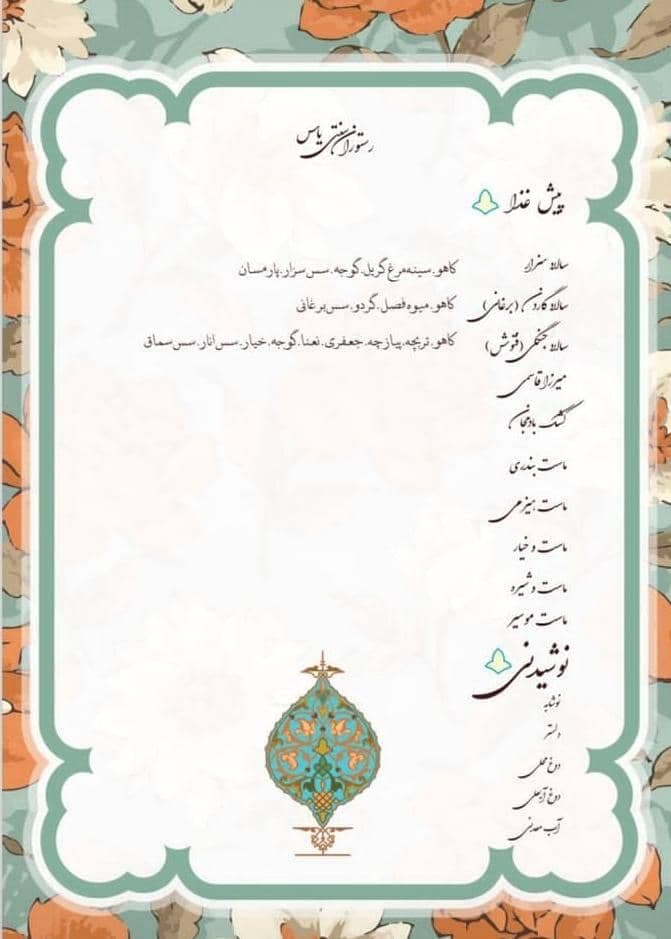 رستوران سنتی یاس
پیش غذا
سالاد سزار کاهو.سینه مرغ گریل.گوجه.سس سزار.پارمسان
سالاد گاردن (برغانی) کاهو.میوه فصل.گردو.سس برغانی
سالاد جنگلی (فتوش) کاهو.تربچه.پیازچه.جعفری.نعنا.گوجه.خیار.سس انار.سس سماق
میرزا قاسمی
کشک بادمجان
ماست بندری
ماست هیزمی
ماست و خیار
ماست و شیره
ماست موسیر
نوشیدنی
نوشابه
دلستر
دوغ محلی
دوغ آبعلی
آب معدنی